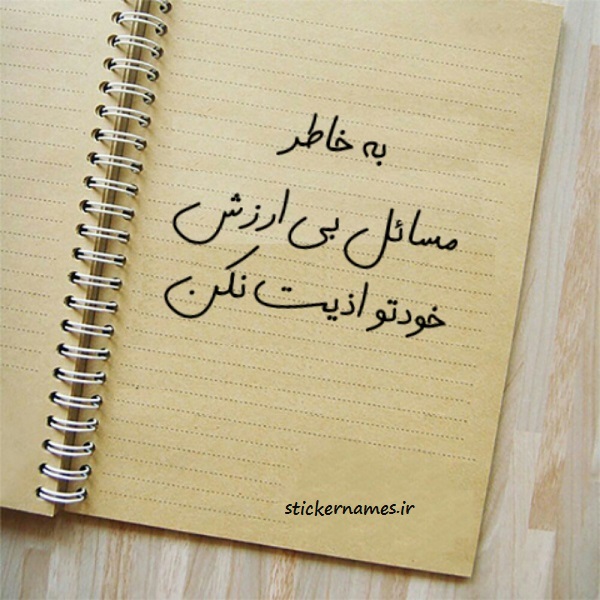 به خاطر
مسائل بی ارزش
خودتو اذیت نکن
stickernames.ir